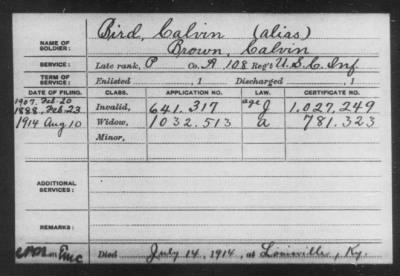 Bird, Calvin (alias)
NAME OF SOLDIER: Brown, Calvin
SERVICE: Late rank, P Co. A 108 Reg't U.S.C. Inf
TERM OF SERVICE: Enlisted , 1 Discharged , 1
DATE OF FILING. CLASS. APPLICATION NO. LAW. CERTIFICATE NO.
1907. Feb. 20
1888. Feb. 23 Invalid, 641.317 age J 1.027.249
1914 Aug 10 Widow, 1032.513 a 781.323
Minor,
ADDITIONAL SERVICES:
REMARKS:
Died July 14, 1914, at Louisville, Ky.